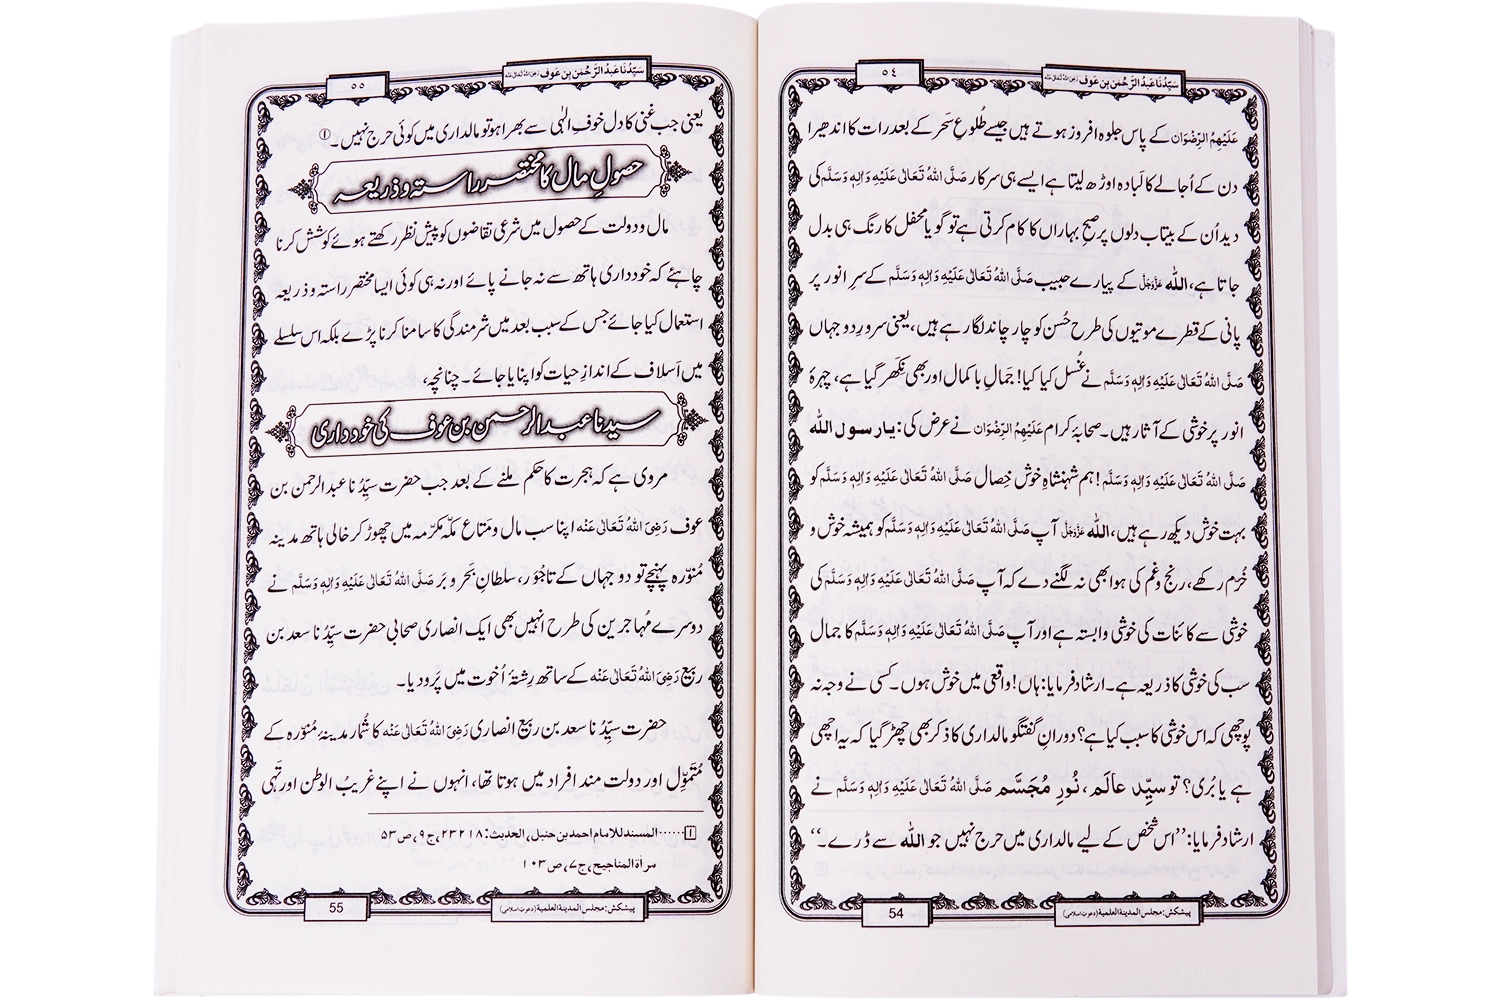 سَیِّدُنا عَبدُ الرَّحْمٰن بِن عَوف رَضِیَ اللہُ تَعَالٰی عَنْہ
٥٤
عَلَیْہِمُ الرِّضْوَان کے پاس جلوہ افروز ہوتے ہیں جیسے طُلوعِ سَحَر کے بعد رات کا اندھیرا
دن کے اُجالے کا لَبادہ اوڑھ لیتا ہے ایسے ہی سرکار صَلَّی اللہُ تَعَالٰی عَلَیْہِ وَاٰلِہٖ وَسَلَّم کی
دید اُن کے بیتاب دلوں پر صبحِ بہاراں کا کام کرتی ہے تو گویا محفل کا رنگ ہی بدل
جاتا ہے، اللہ عَزَّوَجَلَّ کے پیارے حبیب صَلَّی اللہُ تَعَالٰی عَلَیْہِ وَاٰلِہٖ وَسَلَّم کے سرِ انور پر
پانی کے قطرے موتیوں کی طرح حُسن کو چار چاند لگا رہے ہیں، یعنی سرورِ دو جہاں
صَلَّی اللہُ تَعَالٰی عَلَیْہِ وَاٰلِہٖ وَسَلَّم نے غُسل کیا کیا! جَمالِ باکمال اور بھی نِکھر گیا ہے، چہرۂ
انور پر خوشی کے آثار ہیں۔ صحابۂ کرام عَلَیْہِمُ الرِّضْوَان نے عرض کی: یا رسول اللہ
صَلَّی اللہُ تَعَالٰی عَلَیْہِ وَاٰلِہٖ وَسَلَّم! ہم شہنشاہِ خوش خِصال صَلَّی اللہُ تَعَالٰی عَلَیْہِ وَاٰلِہٖ وَسَلَّم کو
بہت خوش دیکھ رہے ہیں، اللہ عَزَّوَجَلَّ آپ صَلَّی اللہُ تَعَالٰی عَلَیْہِ وَاٰلِہٖ وَسَلَّم کو ہمیشہ خوش و
خُرَّم رکھے، رنج و غم کی ہوا بھی نہ لگنے دے کہ آپ صَلَّی اللہُ تَعَالٰی عَلَیْہِ وَاٰلِہٖ وَسَلَّم کی
خوشی سے کائنات کی خوشی وابستہ ہے اور آپ صَلَّی اللہُ تَعَالٰی عَلَیْہِ وَاٰلِہٖ وَسَلَّم کا جمال
سب کی خوشی کا ذریعہ ہے۔ ارشاد فرمایا: ہاں! واقعی میں خوش ہوں۔ کسی نے وجہ نہ
پوچھی کہ اس خوشی کا سبب کیا ہے؟ دورانِ گفتگو مالداری کا ذکر بھی چھڑ گیا کہ یہ اچھی
ہے یا بُری؟ تو سیِّدِ عالَم، نُورِ مُجَسَّم صَلَّی اللہُ تَعَالٰی عَلَیْہِ وَاٰلِہٖ وَسَلَّم نے
ارشاد فرمایا: ’’اس شخص کے لیے مالداری میں حرج نہیں جو اللہ سے ڈرے۔‘‘
پیشکش: مجلس المدینۃ العلمیۃ (دعوتِ اسلامی)
54
سَیِّدُنا عَبدُ الرَّحْمٰن بِن عَوف رَضِیَ اللہُ تَعَالٰی عَنْہ
٥٥
یعنی جب غنی کا دل خوفِ الٰہی سے بھرا ہو تو مالداری میں کوئی حرج نہیں۔ ①
حصولِ مال کا مختصر راستہ و ذریعہ
مال و دولت کے حصول میں شرعی تقاضوں کو پیش نظر رکھتے ہوئے کوشش کرنا
چاہئے کہ خودداری ہاتھ سے نہ جانے پائے اور نہ ہی کوئی ایسا مختصر راستہ و ذریعہ
استعمال کیا جائے جس کے سبب بعد میں شرمندگی کا سامنا کرنا پڑے بلکہ اس سلسلے
میں اَسلاف کے اندازِ حیات کو اپنایا جائے۔ چنانچہ،
سیدنا عبد الرحمن بن عوف کی خودداری
مروی ہے کہ ہجرت کا حکم ملنے کے بعد جب حضرت سیِّدُنا عبد الرحمن بن
عوف رَضِیَ اللہُ تَعَالٰی عَنْہ اپنا سب مال و متاع مکّہ مکرّمہ میں چھوڑ کر خالی ہاتھ مدینہ
مُنوّرہ پہنچے تو دو جہاں کے تاجْوَر، سلطانِ بَحر و بَر صَلَّی اللہُ تَعَالٰی عَلَیْہِ وَاٰلِہٖ وَسَلَّم نے
دوسرے مُہاجرین کی طرح انہیں بھی ایک انصاری صحابی حضرت سیِّدُنا سعد بن
ربیع رَضِیَ اللہُ تَعَالٰی عَنْہ کے ساتھ رِشتۂ اُخوت میں پِرَو دیا۔
حضرت سیِّدُنا سعد بن ربیع انصاری رَضِیَ اللہُ تَعَالٰی عَنْہ کا شُمار مدینۂ مُنوّرہ کے
مُتَمَوِّل اور دولت مند افراد میں ہوتا تھا، انہوں نے اپنے غریبُ الوطن اور تَہی
①……المسند للامام احمد بن حنبل، الحدیث: ٢٣٢١٨، ج٩، ص٥٣
مرآۃ المناجیح، ج٧، ص١٠٣
پیشکش: مجلس المدینۃ العلمیۃ (دعوتِ اسلامی)
55